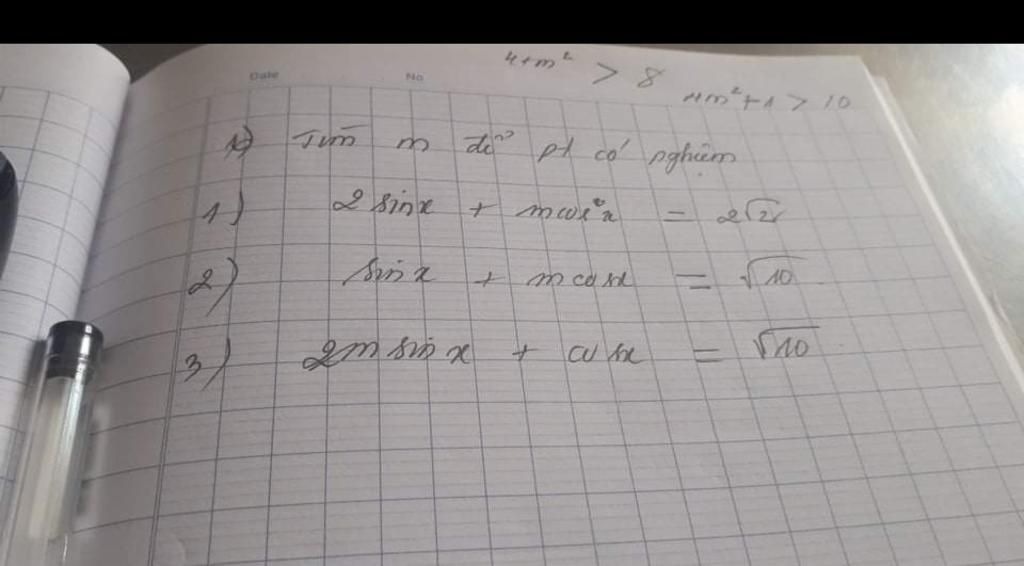 Date No
4+m² > 8
4m²+1 > 10
Tìm m để pt có nghiệm
1) 2 sinx + mcosx = 2√2
2) sinx + mcosx = √10
3) 2m sinx + cosx = √10